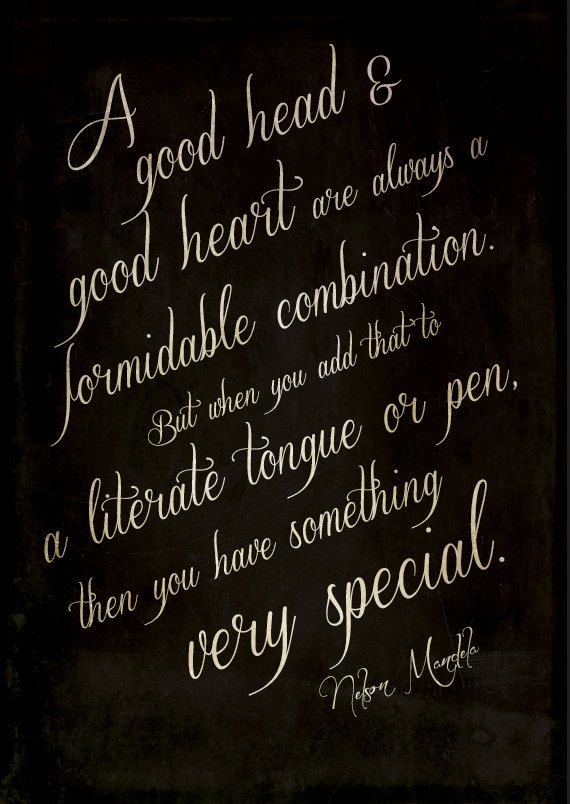 A good head &
good heart are always a
formidable combination.
But when you add that to
a literate tongue or pen,
then you have something
very special.
Nelson Mandela